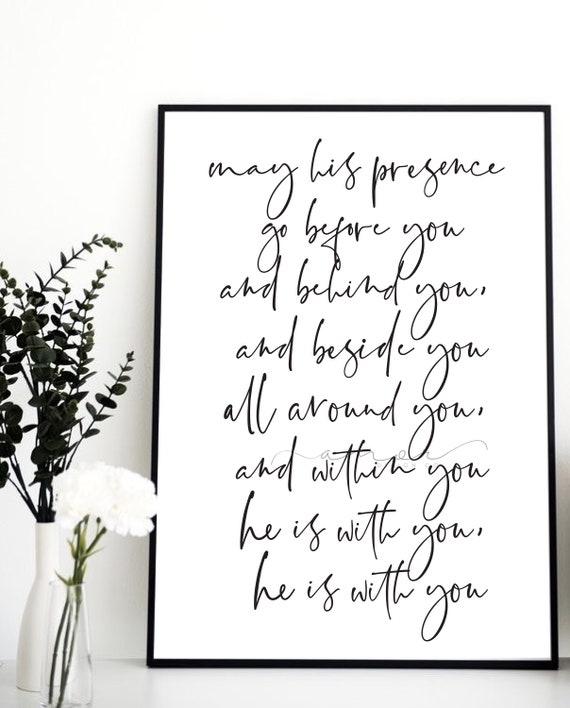 may his presence
go before you
and behind you,
and beside you
all around you,
and within you
he is with you,
he is with you